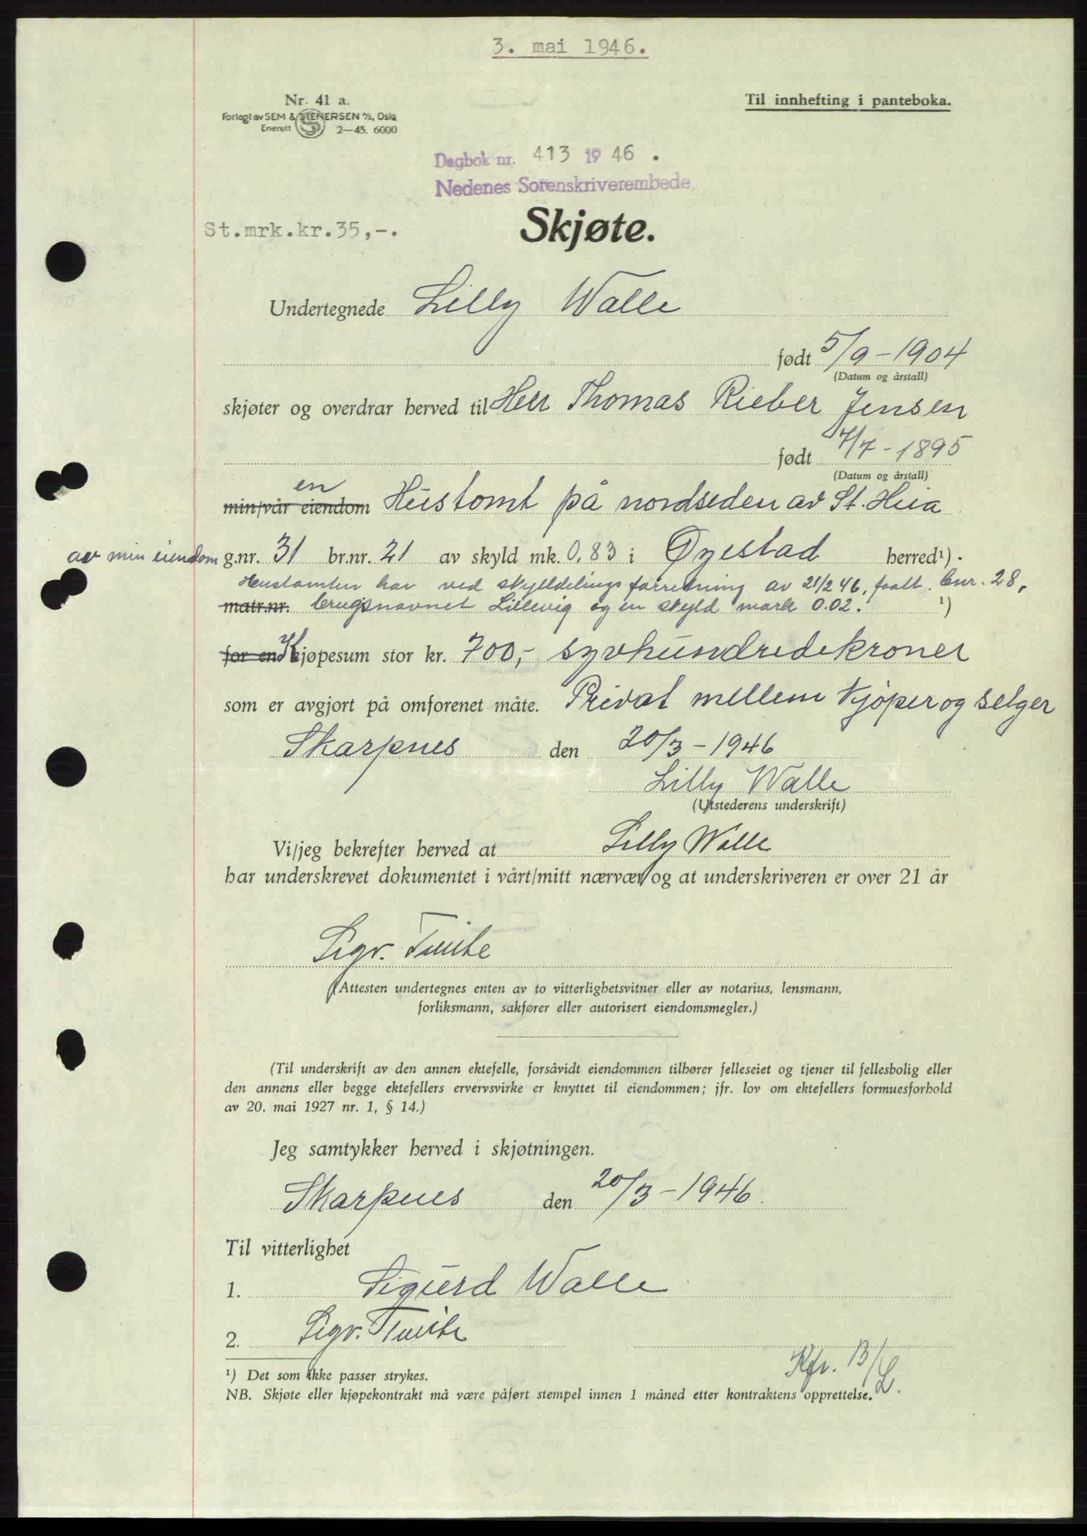 3. mai 1946.
Nr. 41 a.
Til innhefting i panteboka.
Forlagt av SEM & STENERSEN A/S, Oslo
Enerett 2—45. 6000
Dagbok nr. 413 1946.
Nedenes Sorenskriverembede
St.mrk.kr.35,-.
Skjøte.
Undertegnede Lilly Walle
født 5/9-1904
(Datum og årstall)
skjøter og overdrar herved til Herr Thomas Rieber Jensen
født 7/7-1895
(Datum og årstall)
en
min/vår eiendom Hustomt på nordsiden av St. Heia
av min eiendom g.nr. 31 br.nr. 21 av skyld mk. 0,83 i Øyestad herred¹).
Hustomten har ved skylddelingsforretning av 21/2 46, faatt bnr. 28,
matr.nr. brugsnavnet Lillevig og en skyld mark 0.02. ¹)
for en Kjøpesum stor kr. 700,- syvhundredekroner
som er avgjort på omforenet måte. Privat mellem kjøper og selger
Skarpnes den 20/3-1946
Lilly Walle
(Utstederens underskrift)
Vi/jeg bekrefter herved at Lilly Walle
har underskrevet dokumentet i vårt/mitt nærvær og at underskriveren er over 21 år
Sigv.
(Attesten undertegnes enten av to vitterlighetsvitner eller av notarius, lensmann,
forliksmann, sakfører eller autorisert eiendomsmegler.)
(Til underskrift av den annen ektefelle, forsåvidt eiendommen tilhører felleseiet og tjener til fellesbolig eller
den annens eller begge ektefellers ervervsvirke er knyttet til eiendommen; jfr. lov om ektefellers formuesforhold
av 20. mai 1927 nr. 1, § 14.)
Jeg samtykker herved i skjøtningen.
Skarpnes den 20/3-1946.
Til vitterlighet
1. Sigurd Walle
2. Sigv.
¹) Det som ikke passer strykes.
Kfr. B/L.
NB. Skjøte eller kjøpekontrakt må være påført stempel innen 1 måned etter kontraktens opprettelse.